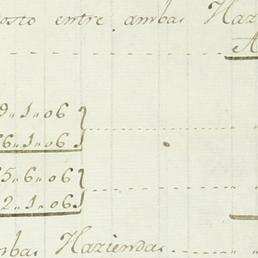 osto entre ambas Haz
A
9,,1,,06
6,,1,,06
5,,6,,06
2,,1,,06
mbas Haziendas